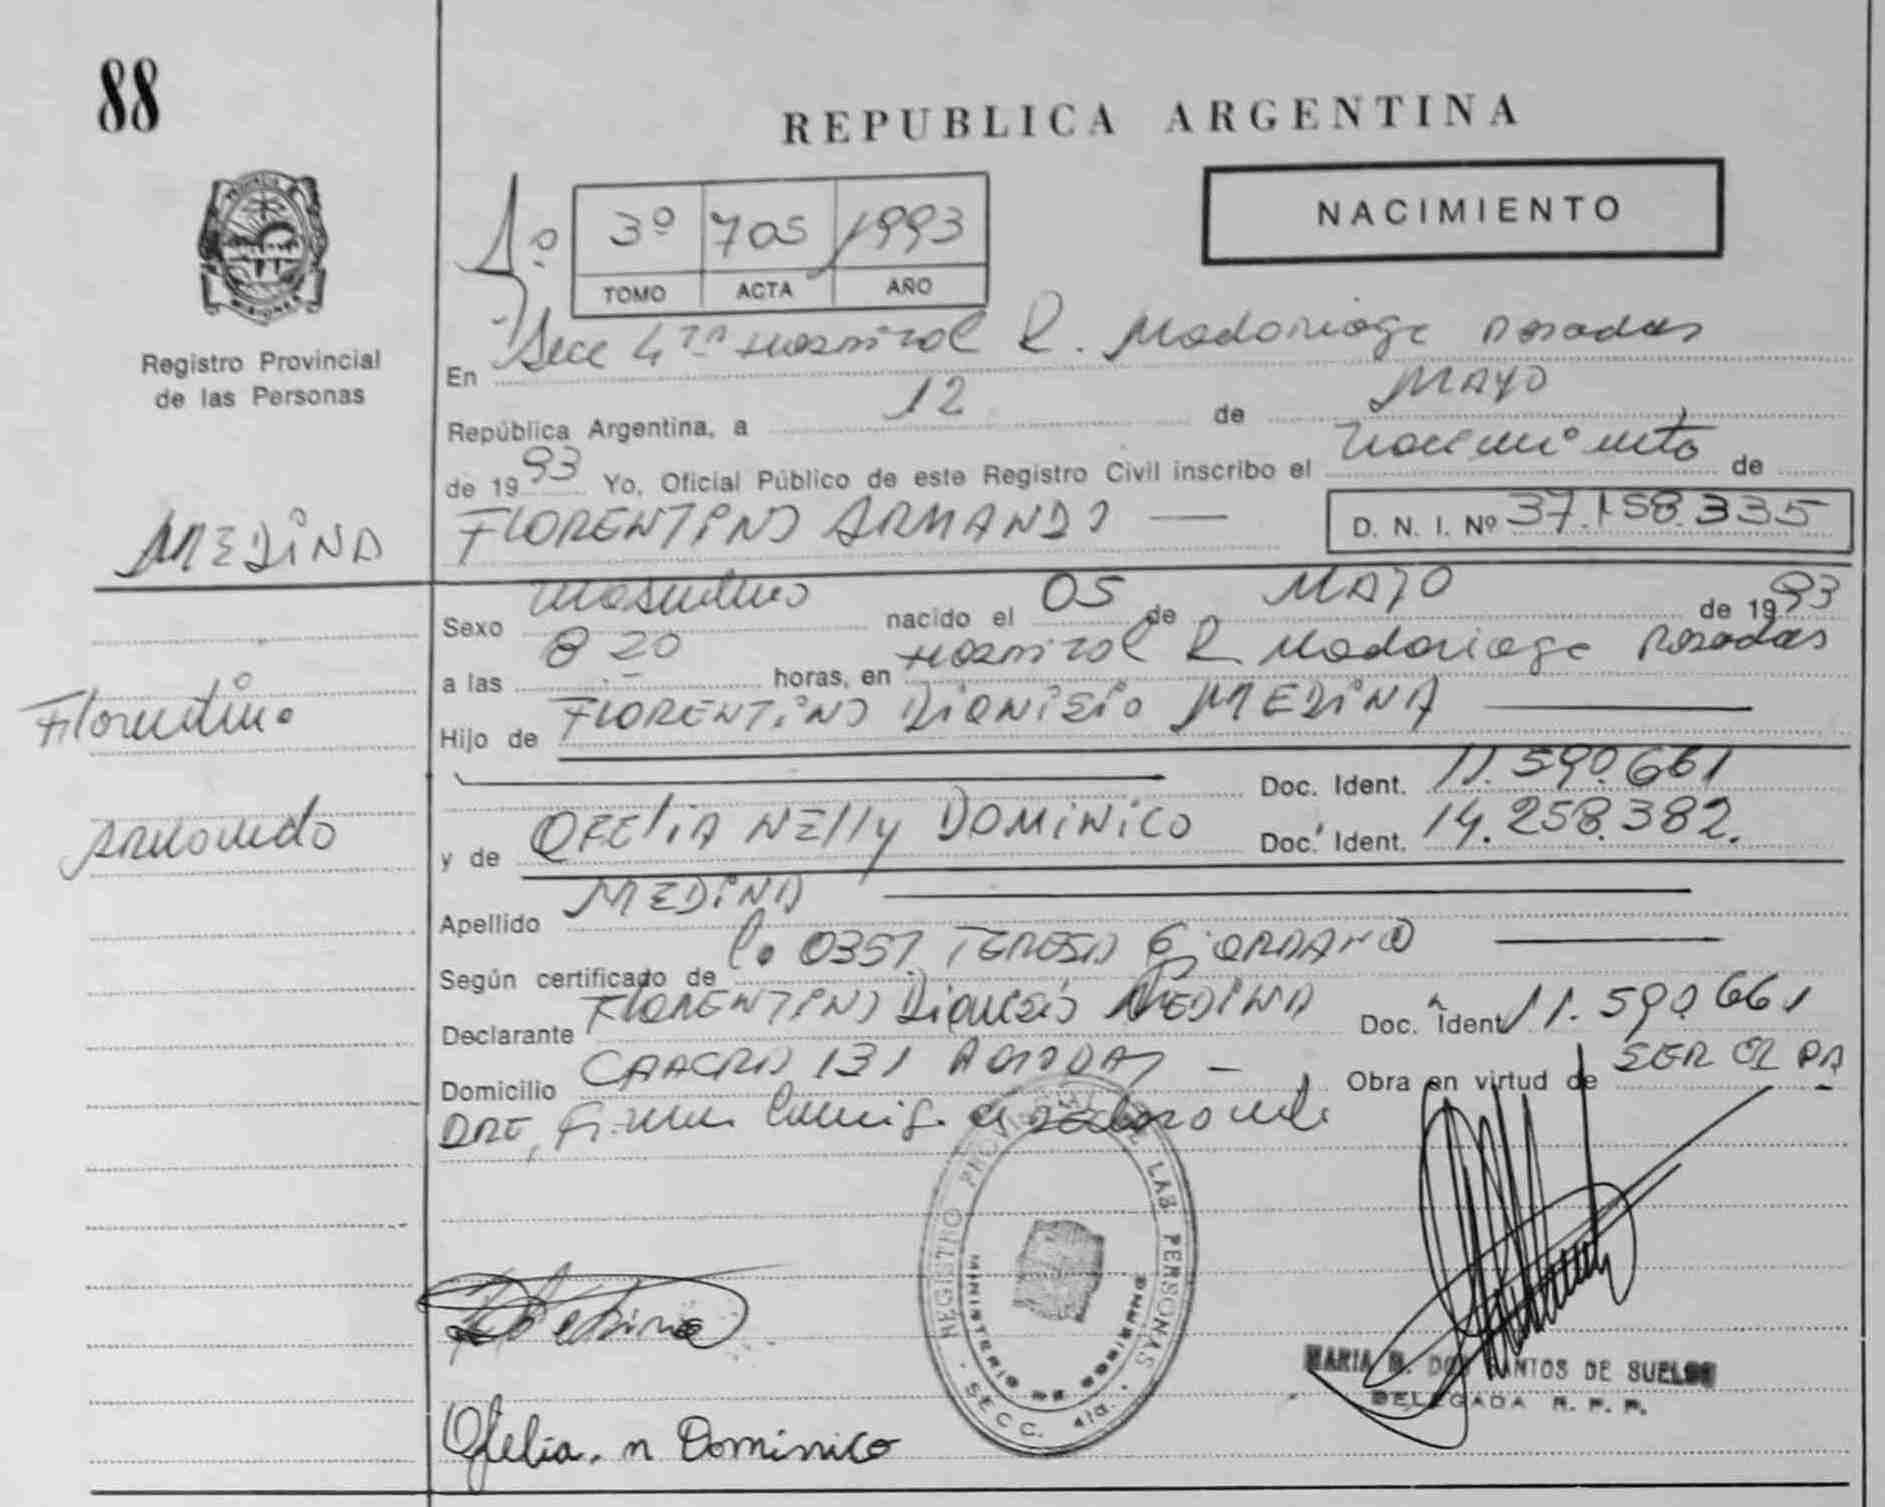 88
REPUBLICA ARGENTINA
NACIMIENTO
1º
3º 705 1993
TOMO ACTA AÑO
MISIONES
Registro Provincial
de las Personas
En Secc 4ta Hospital R. Madariaga Posadas
República Argentina, a 12 de MAYO
de 1993 Yo, Oficial Público de este Registro Civil inscribo el nacimiento de
MEDINA
FLORENTINO ARMANDO — D. N. I. Nº 37.158.335
Sexo masculino nacido el 05 de MAYO de 1993
a las 8 20 horas, en Hospital R Madariaga Posadas
Florentino
Hijo de FLORENTINO DIONISIO MEDINA
Doc. Ident. 11.590.661
Armando
y de OFELIA NELLY DOMINICO Doc. Ident. 14.258.382.
Apellido MEDINA
Según certificado de 0357 TERESA GIORDANO
Declarante FLORENTINO Dionisio MEDINA Doc. Ident 11.590.661
Domicilio 131 Obra en virtud de SER EL PA
DRE, el
REGISTRO PROVINCIAL DE LAS PERSONAS
MINISTERIO DE GOBIERNO
SECC. 4ta.
Medina
MARIA DOS SANTOS DE SUELOS
DELEGADA R. P. P.
Ofelia. n Dominico